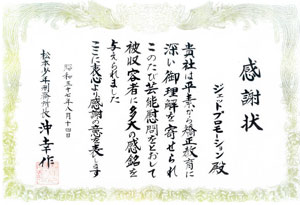 感謝状
ジェットプロモーション殿
貴社は平素から矯正教育に
深い御理解を寄せられ
このたび芸能慰問をとおして
被収容者に多大の感銘を
与えられました
ここに衷心より感謝の意を表します
昭和五十年八月十四日
松本少年刑務所長 沖幸作